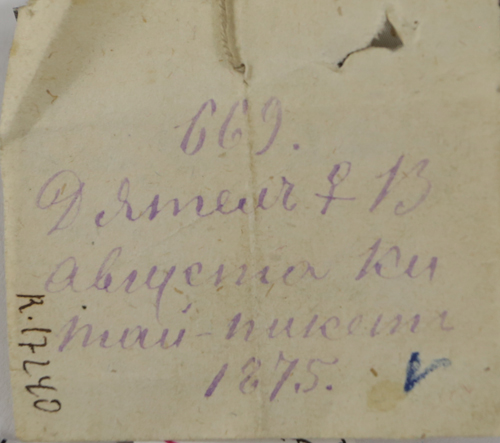 669.
Дятелъ ♀ 13
августа Ки
тай-пикетъ
1875.
к.17240